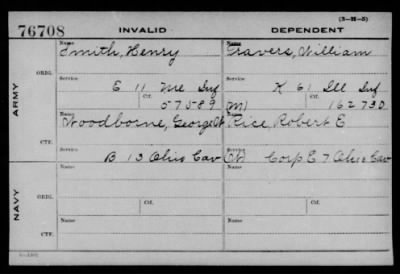 (3-H-5)
76708 INVALID DEPENDENT
Name Name
Smith, Henry Travers, William
ARMY
ORIG.
Service Service
E 11 Me Inf K 61 Ill Inf
Ctf. Ctf.
57589 (M) 162730
Name Name
Woodborne, George Rice, Robert E
CTF.
Service Service
B 13 Ohio Cav Corp E 7 Ohio Cav
NAVY
ORIG.
Name Ctf. Name Ctf.
CTF.
Name Name